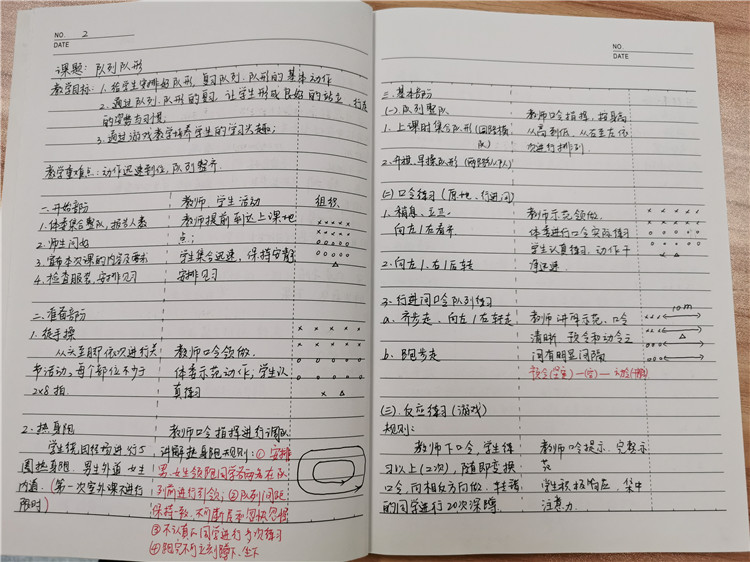 NO. 2
DATE
课题：队列队形
教学目标：1.给学生安排好队形，复习队列、队形的基本动作
2.通过队列、队形的复习，让学生形成良好的站立、行走
的姿势与习惯；
3.通过游戏教学培养学生的学习兴趣；
教学重难点：动作迅速到位，队列整齐.
一.开始部分 教师、学生活动 组织
1.体委集合整队，报告人数 教师提前到达上课地
2.师生问好 点；
3.宣布本次课的内容及要求 学生集合迅速，保持安静
4.检查服装，安排见习 安排见习
二.准备部分
1.徒手操
从头至脚依次进行关 教师口令领做.
节活动，每个部位不少于 体委示范动作，学生认
2x8拍. 真练习
2.热身跑 教师口令指挥进行调队
学生绕田径场进行 讲解热身跑规则：①安排
圈热身跑.男生外道，女生 男、女生领跑同学
内道.(第一次室外课不进行 列前进行引领；②队列间距
限时) 保持一致，不可断层
③不认真的同学进行多次练习
④跑完不可立刻蹲下、坐下
NO.
DATE
三.基本部分
(一).队列整队 教师口令指挥，按身高
1.上课时集合队形(四路横 从高到低、从左至右依
队) 次进行排列.
2.升旗、早操队形
(二)口令练习(原地、行进间)
1.稍息、立正. 教师示范领做.
向左/右看齐 体委进行口令实际练习
学生认真练习，动作干
2.向左/、右/后转 净迅速.
3.行进间口令队列练习 10m
a.齐步走、向左/右转走 教师讲解示范、口令
清晰 预令和动令之
b.跑步走 间有明显间隔
(三).反应练习(游戏)
规则：
教师下口令，学生练 教师口令提示、完整示
习以上(二次)，随即变换 范
口令，向相反方向做.转错 学生积极响应，集中
的同学进行20次深蹲. 注意力.